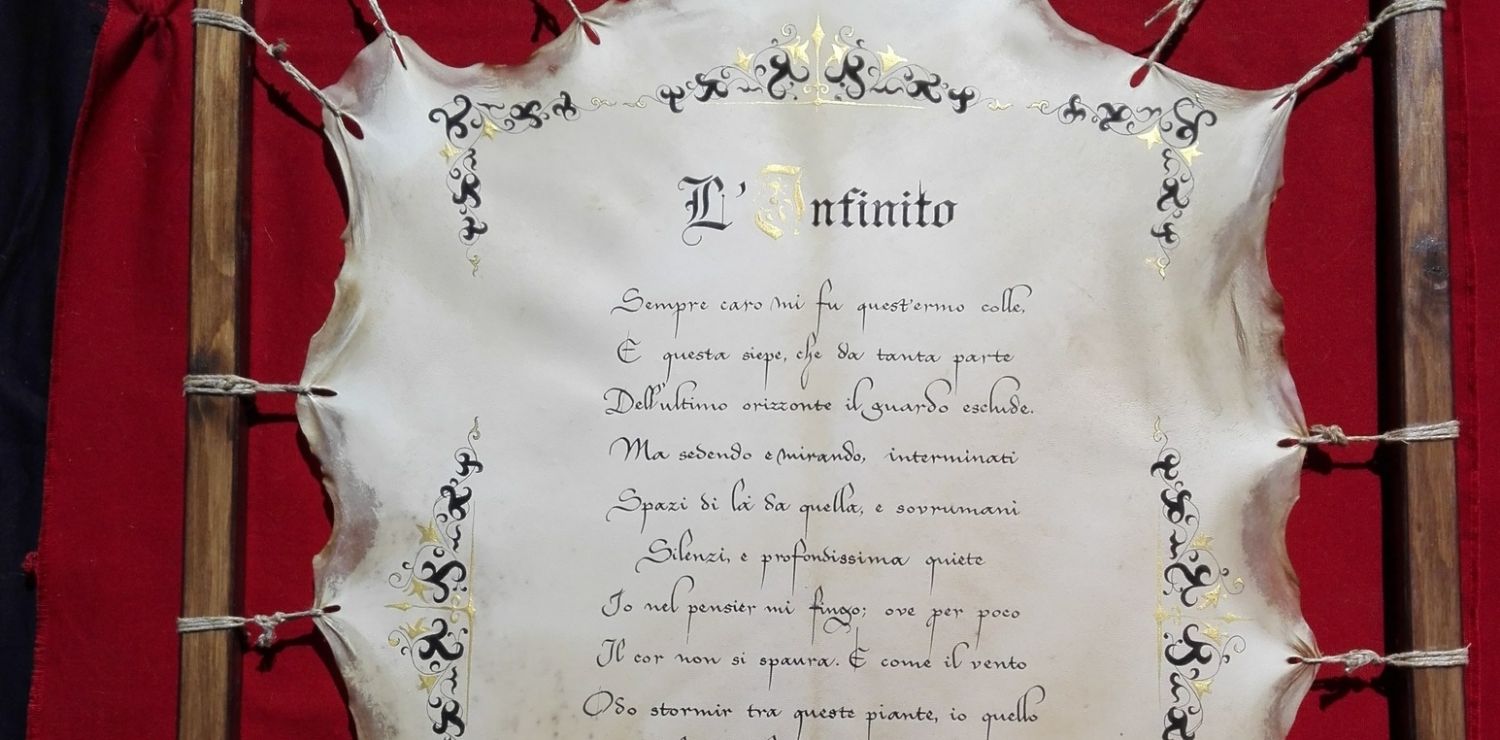 L'Infinito
Sempre caro mi fu quest'ermo colle,
E questa siepe, che da tanta parte
Dell'ultimo orizzonte il guardo esclude.
Ma sedendo e mirando, interminati
Spazi di là da quella, e sovrumani
Silenzi, e profondissima quiete
Io nel pensier mi fingo; ove per poco
Il cor non si spaura. E come il vento
Odo stormir tra queste piante, io quello